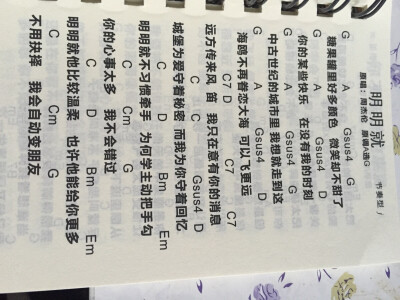 明明就
节奏型 /
原唱：周杰伦 原调A选G
G A Gsus4 G
糖果罐里好多颜色 微笑却不甜了
G A Gsus4 D
你的某些快乐 在没有我的时刻
G A Gsus4 G
中古世纪的城市里 我想就走到这
G A Gsus4 D
海鸥不再眷恋大海 可以飞更远
C7 D C7
远方传来风笛 我只在意有你的消息
C C Gsus4 D
城堡为爱守着秘密 而我为你守着回忆
C D Bm Em
明明就不习惯牵手 为何学主动把手勾
C Cm G
你的心事太多 我不会错过
C D Bm Em
明明就他比较温柔 也许他能给你更多
C Cm G
不用抉择 我会自动变朋友